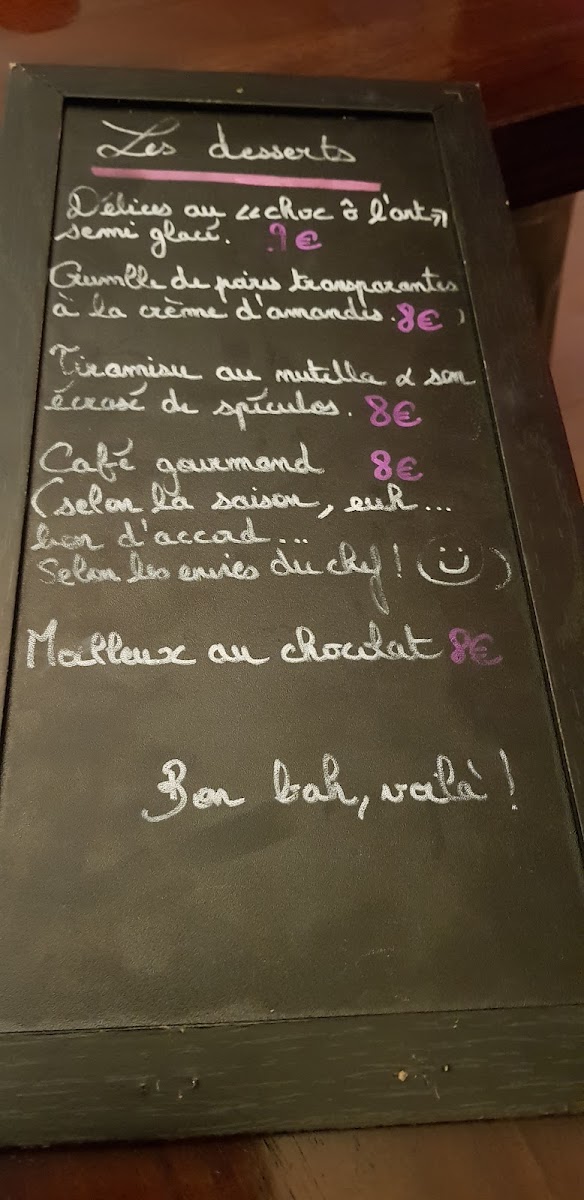 Les desserts
Délices au «choc ô l'art»
semi glacé. 9€
Crumble de poires transparantes
à la crème d'amandes. 8€
Tiramisu au nutella & son
écrasé de spéculos. 8€
Café gourmand 8€
(selon la saison, euh...
bon d'accord...
Selon les envies du chef! )
Moelleux au chocolat 8€
Bon bah, voilà!